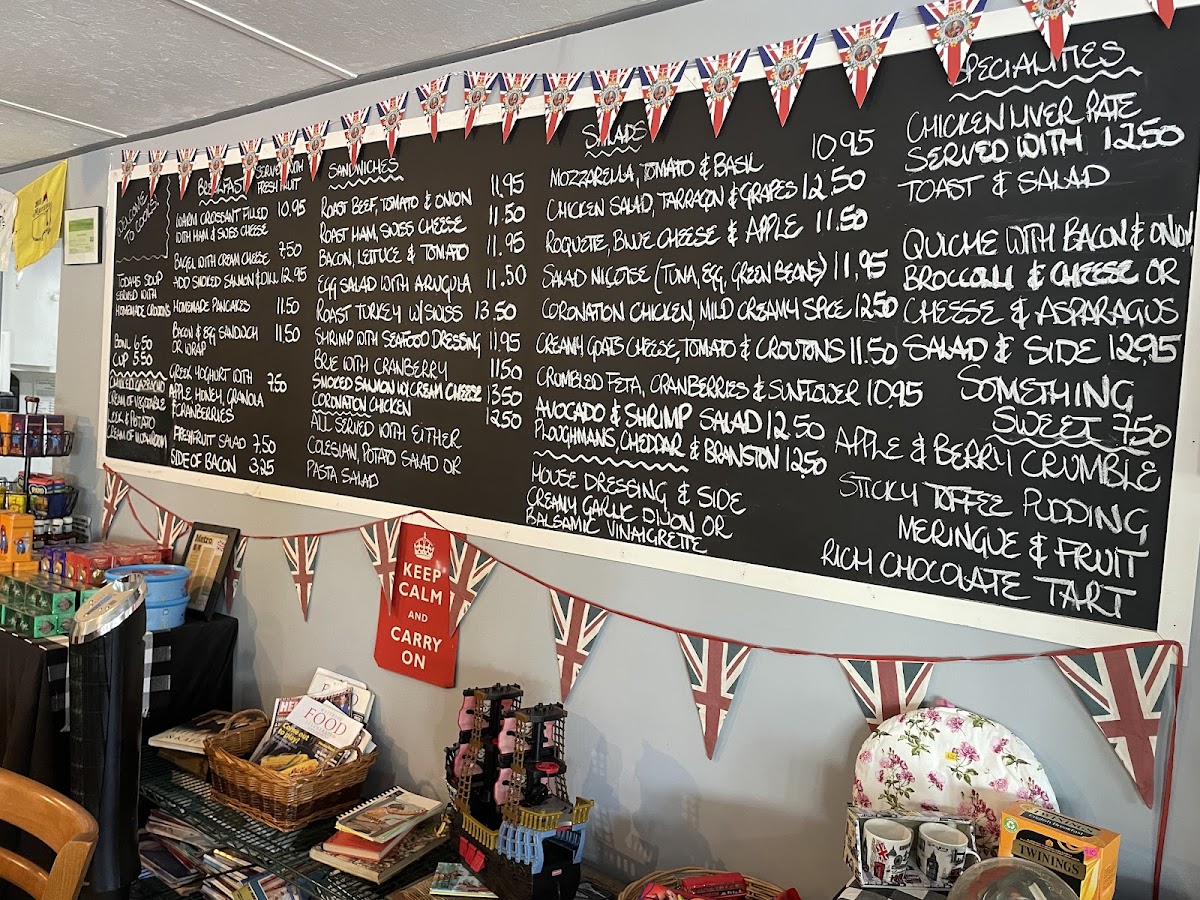 WELCOME
TO COOLS!
TODAYS SOUP
SERVED WITH
HOMEMADE CROUTONS
BOWL 6.50
CUP 5.50
CREAM OF VEGETABLE
LEEK & POTATO
CREAM OF MUSHROOM
BREAKFAST
SERVED WITH
FRESH FRUIT
WARM CROSSANT FILLED 10.95
WITH HAM & SWISS CHEESE
BAGEL WITH CREAM CHEESE 7.50
ADD SMOKED SALMON & DILL 12.95
HOMEMADE PANCAKES 11.50
BACON & EGG SANDWICH 11.50
OR WRAP
GREEK YOGHURT WITH 7.50
APPLE HONEY, GRANOLA
& CRANBERRIES
FRESH FRUIT SALAD 7.50
SIDE OF BACON 3.25
SANDWICHES
ROAST BEEF, TOMATO & ONION 11.95
ROAST HAM, SWISS CHEESE 11.50
BACON, LETTUCE & TOMATO 11.95
EGG SALAD WITH ARUGULA 11.50
ROAST TURKEY W/ SWISS 13.50
SHRIMP WITH SEAFOOD DRESSING 11.95
BRIE WITH CRANBERRY 11.50
SMOKED SALMON W/ CREAM CHEESE 13.50
CORONATION CHICKEN 12.50
ALL SERVED WITH EITHER
COLESLAW, POTATO SALAD OR
PASTA SALAD
SALADS
MOZZARELLA, TOMATO & BASIL 10.95
CHICKEN SALAD, TARRAGON & GRAPES 12.50
ROQUETTE, BLUE CHEESE & APPLE 11.50
SALAD NICOISE (TUNA, EGG, GREEN BEANS) 11.95
CORONATION CHICKEN, MILD CREAMY SPICE 12.50
CREAMY GOATS CHEESE, TOMATO & CROUTONS 11.50
CRUMBLED FETA, CRANBERRIES & SUNFLOWER 10.95
AVOCADO & SHRIMP SALAD 12.50
PLOUGHMANS, CHEDDAR & BRANSTON 12.50
HOUSE DRESSING & SIDE
CREAMY GARLIC DIJON OR
BALSAMIC VINAIGRETTE
SPECIALITIES
CHICKEN LIVER PATE
SERVED WITH 12.50
TOAST & SALAD
QUICHE WITH BACON & ONION
BROCCOLI & CHEESE OR
CHEESE & ASPARAGUS
SALAD & SIDE 12.95
SOMETHING
SWEET 7.50
APPLE & BERRY CRUMBLE
STICKY TOFFEE PUDDING
MERINGUE & FRUIT
RICH CHOCOLATE TART
KEEP
CALM
AND
CARRY
ON
Metro
FOOD
English Breakfast
TWININGS